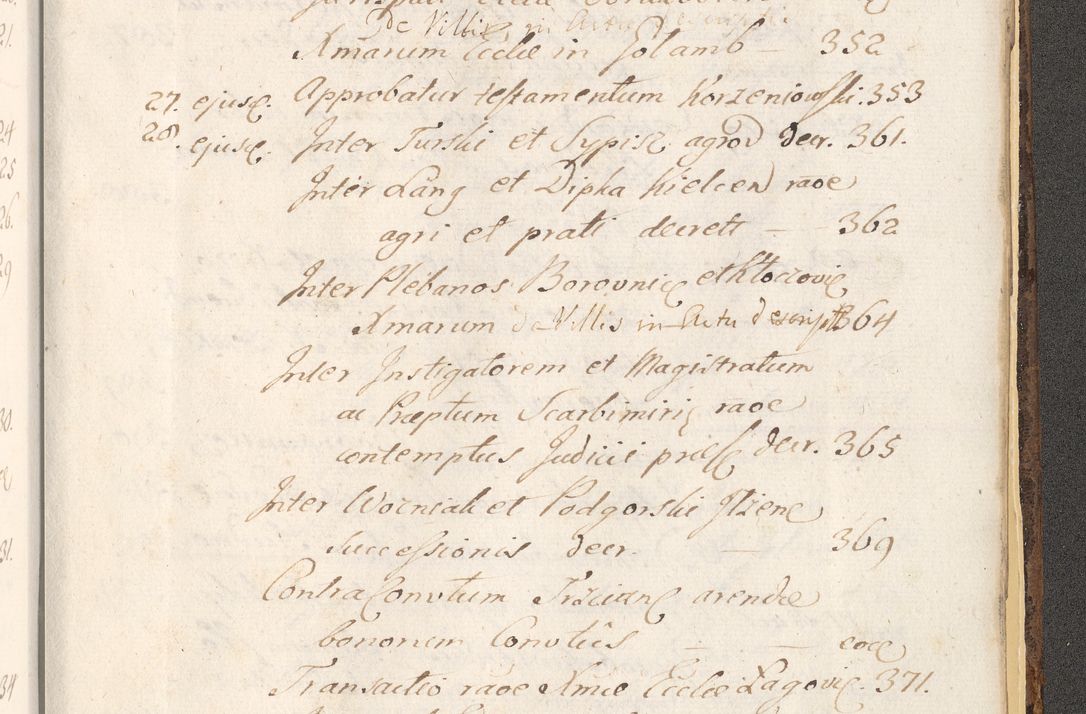 De Villis, in Actu descripti
Xmarum Eccliæ in Gołamb — 352
27. ejusd. Approbatur testamentum Korzeniowski. 353
28. ejusd. Inter Turski et Sypis agror decr. 361.
Inter Lang et Dipka Kielcen raoe
agri et prati decrett — 362
Inter Plebanos Borovnic et Kłoczovic
Xmarum de Villis in Actu descript 364
Inter Instigatorem et Magistratum
ac Præptum Scarbimiris raoe
contemptus Judicii præs decr. 365
Inter Wozniak et Podgorski Ilzenc
successionis decr. — 369
Contra Convtum Trzcianc arendæ
bonorum Convtûs — — eoe
Transactio raoe Xmæ Eccliæ Łagovic. 371.